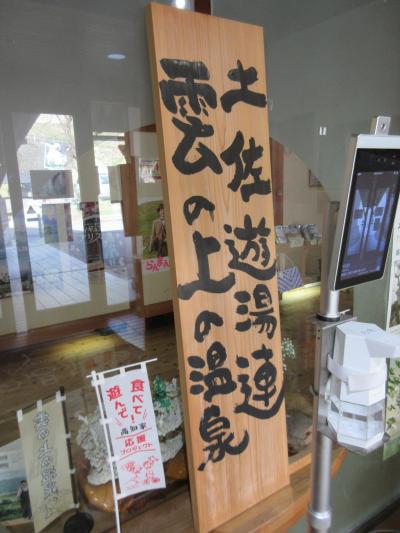 土佐遊湯連
雲の上の温泉
食べて!
遊んで
高知家
応援
プロジェクト
らんまん